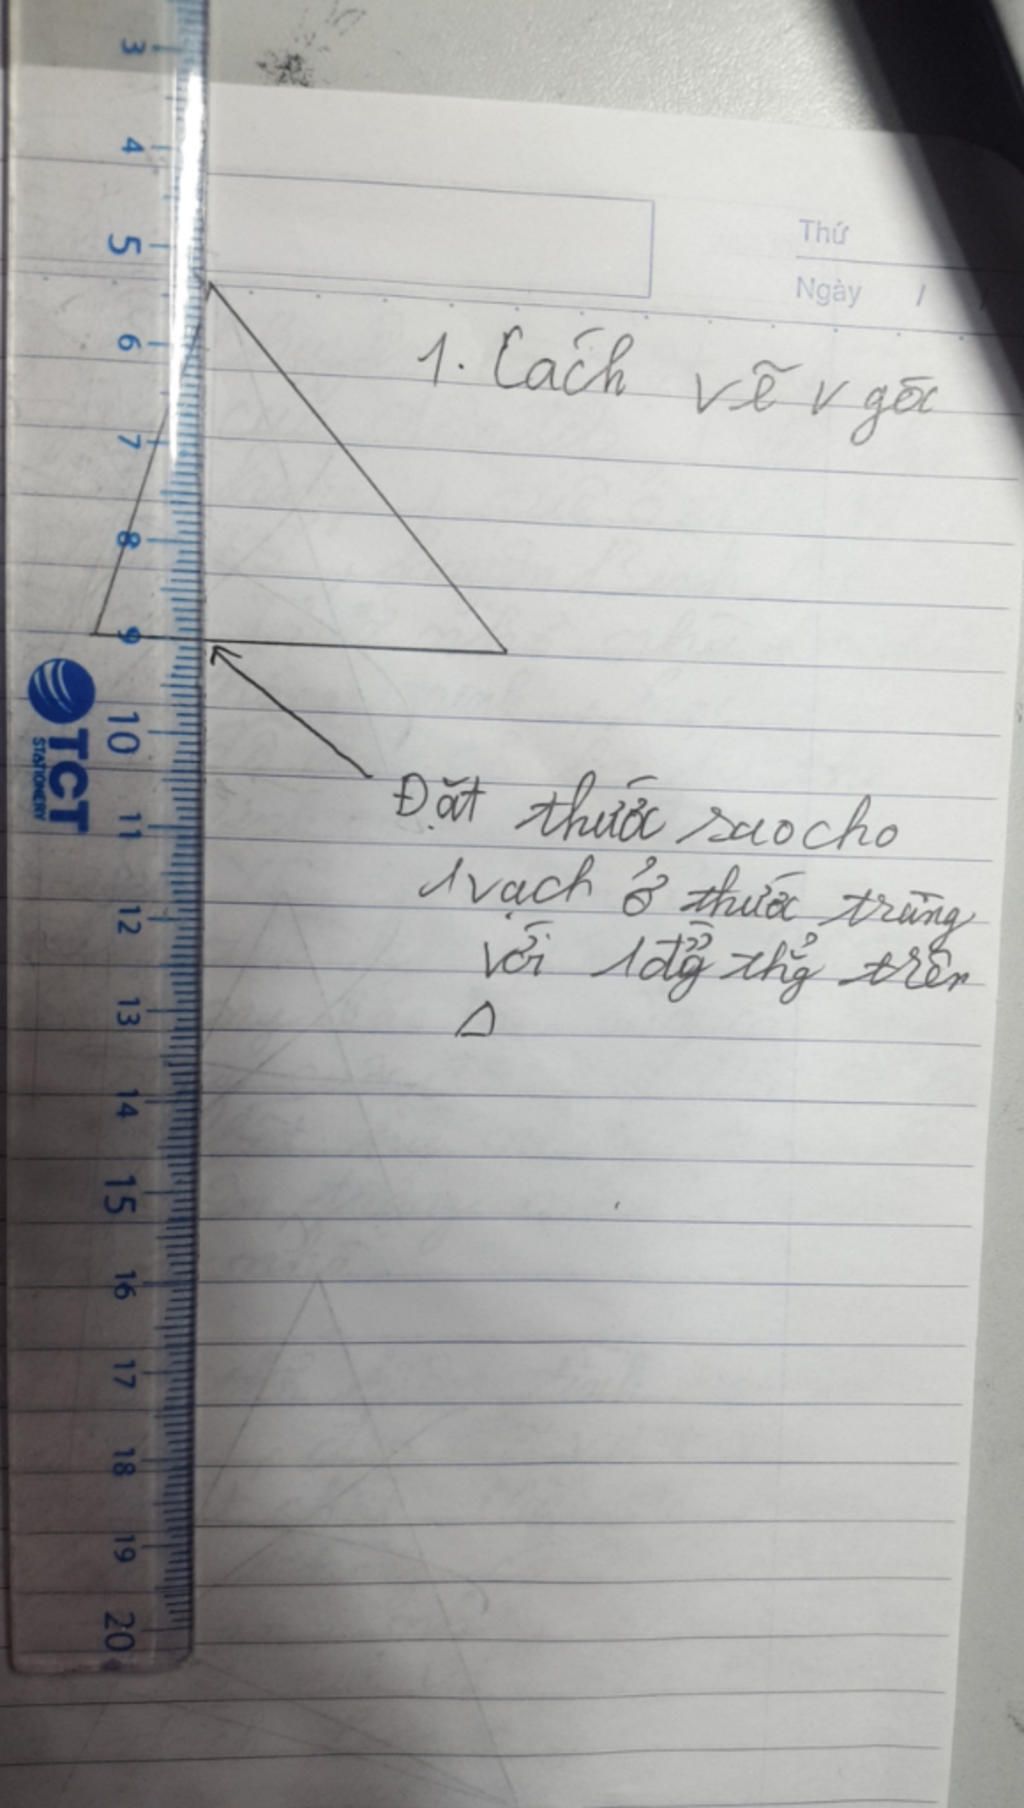 3
4
5
6
7
8
9
10
11
12
13
14
15
16
17
18
19
20
TCT
STATIONERY
Thứ
Ngày / /
1. Cách vẽ v góc
Đặt thước sao cho
1 vạch ở thước trùng
với 1 đg thg trên
Δ